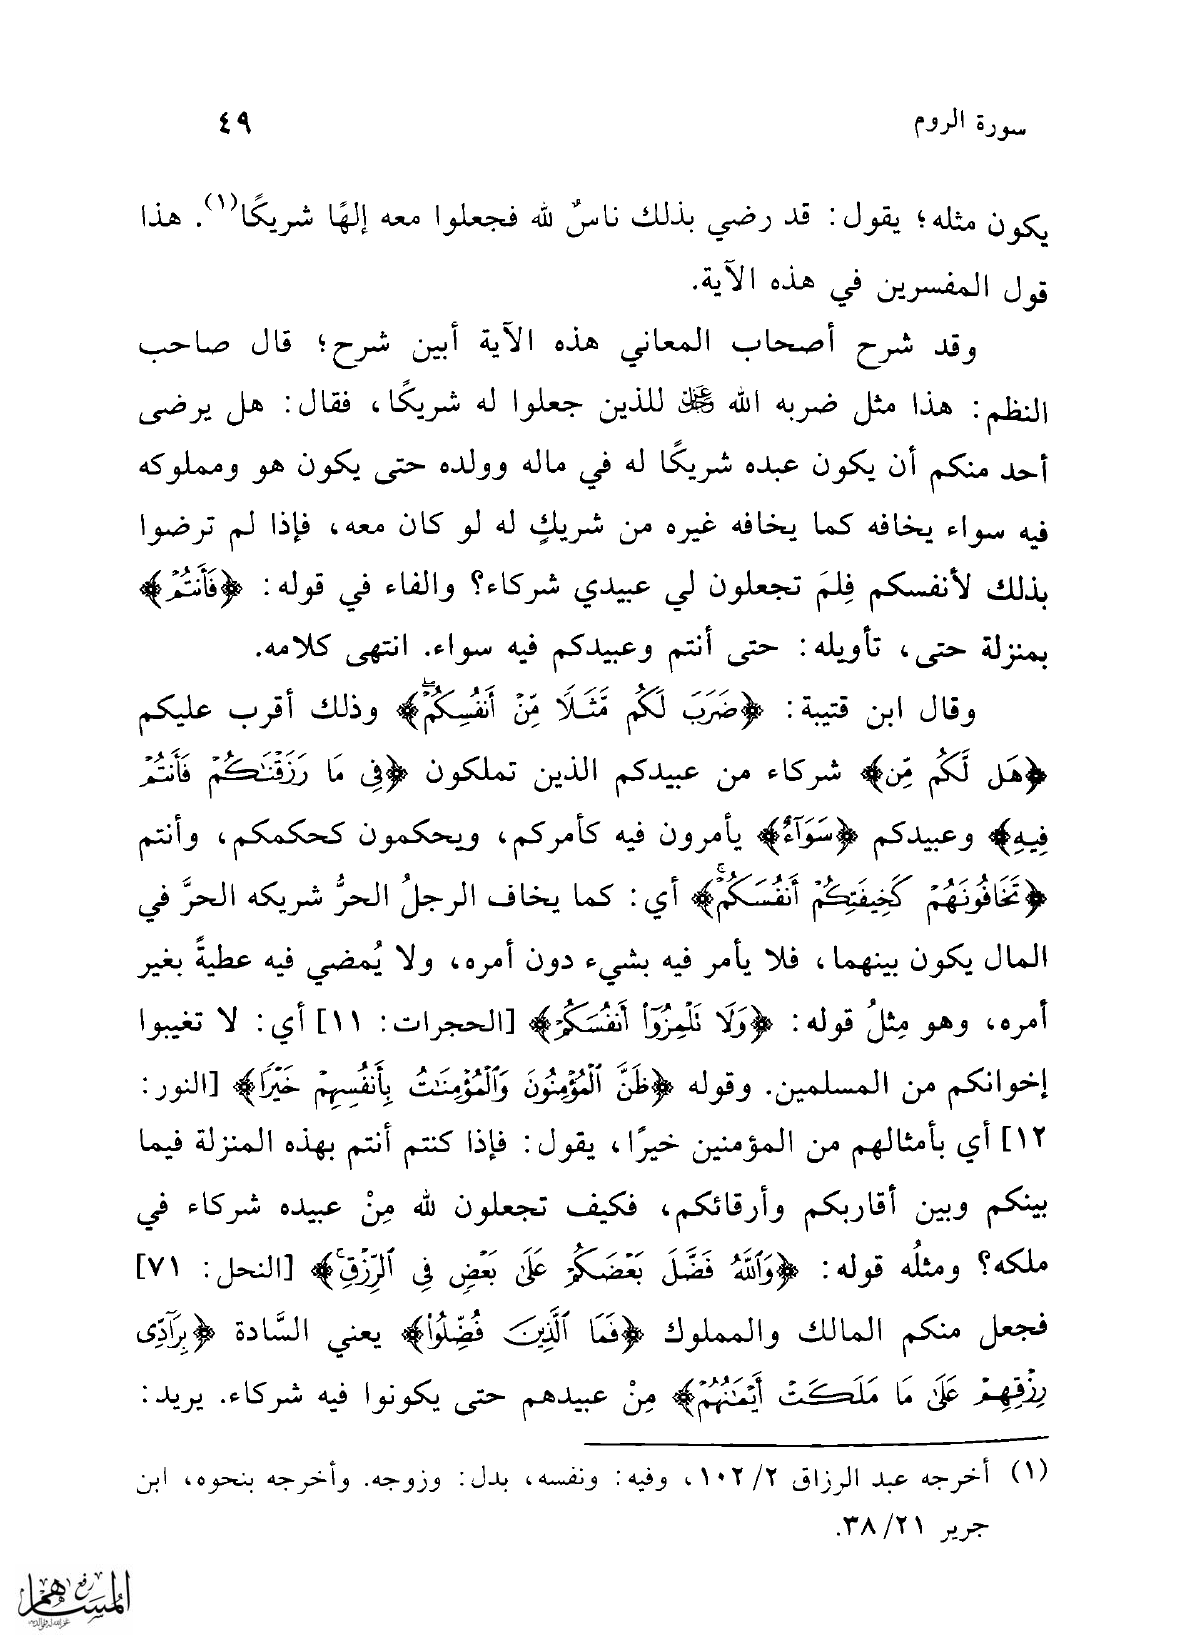 سورة الروم ٤٩
يكون مثله؛ يقول: قد رضي بذلك ناسٌ لله فجعلوا معه إلهًا شريكًا(١). هذا
قول المفسرين في هذه الآية.
وقد شرح أصحاب المعاني هذه الآية أبين شرح؛ قال صاحب
النظم: هذا مثل ضربه الله عز وجل للذين جعلوا له شريكًا، فقال: هل يرضى
أحد منكم أن يكون عبده شريكًا له في ماله وولده حتى يكون هو ومملوكه
فيه سواء يخافه كما يخافه غيره من شريكٍ له لو كان معه، فإذا لم ترضوا
بذلك لأنفسكم فِلمَ تجعلون لي عبيدي شركاء؟ والفاء في قوله: ﴿فَأَنتُمْ﴾
بمنزلة حتى، تأويله: حتى أنتم وعبيدكم فيه سواء. انتهى كلامه.
وقال ابن قتيبة: ﴿ضَرَبَ لَكُم مَّثَلًا مِّنْ أَنفُسِكُمْ ۖ﴾ وذلك أقرب عليكم
﴿هَل لَّكُم مِّن﴾ شركاء من عبيدكم الذين تملكون ﴿فِي مَا رَزَقْنَاكُمْ فَأَنتُمْ
فِيهِ﴾ وعبيدكم ﴿سَوَآءٌ﴾ يأمرون فيه كأمركم، ويحكمون كحكمكم، وأنتم
﴿تَخَافُونَهُمْ كَخِيفَتِكُمْ أَنفُسَكُمْ ۚ﴾ أي: كما يخاف الرجلُ الحرُّ شريكه الحرَّ في
المال يكون بينهما، فلا يأمر فيه بشيء دون أمره، ولا يُمضي فيه عطيةً بغير
أمره، وهو مِثلُ قوله: ﴿وَلَا تَلْمِزُوٓا۟ أَنفُسَكُمْ﴾ [الحجرات: ١١] أي: لا تغيبوا
إخوانكم من المسلمين. وقوله ﴿ظَنَّ ٱلْمُؤْمِنُونَ وَٱلْمُؤْمِنَٰتُ بِأَنفُسِهِمْ خَيْرًا﴾ [النور:
١٢] أي بأمثالهم من المؤمنين خيرًا، يقول: فإذا كنتم أنتم بهذه المنزلة فيما
بينكم وبين أقاربكم وأرقائكم، فكيف تجعلون لله مِنْ عبيده شركاء في
ملكه؟ ومثلُه قوله: ﴿وَٱللَّهُ فَضَّلَ بَعْضَكُمْ عَلَىٰ بَعْضٍ فِي ٱلرِّزْقِ ۚ﴾ [النحل: ٧١]
فجعل منكم المالك والمملوك ﴿فَمَا ٱلَّذِينَ فُضِّلُوا۟﴾ يعني السَّادة ﴿بِرَآدِّي
رِزْقِهِمْ عَلَىٰ مَا مَلَكَتْ أَيْمَٰنُهُمْ﴾ مِنْ عبيدهم حتى يكونوا فيه شركاء. يريد:
(١) أخرجه عبد الرزاق ١٠٢/٢، وفيه: ونفسه، بدل: وزوجه. وأخرجه بنحوه، ابن
جرير ٣٨/٢١.